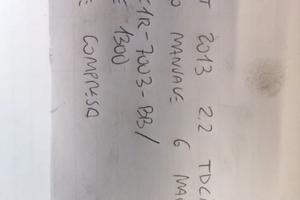 T 2013 2.2 TDCI
O MANUALE 6 MAR
E1R-7003-BB/
E 1300
E COMPRESA